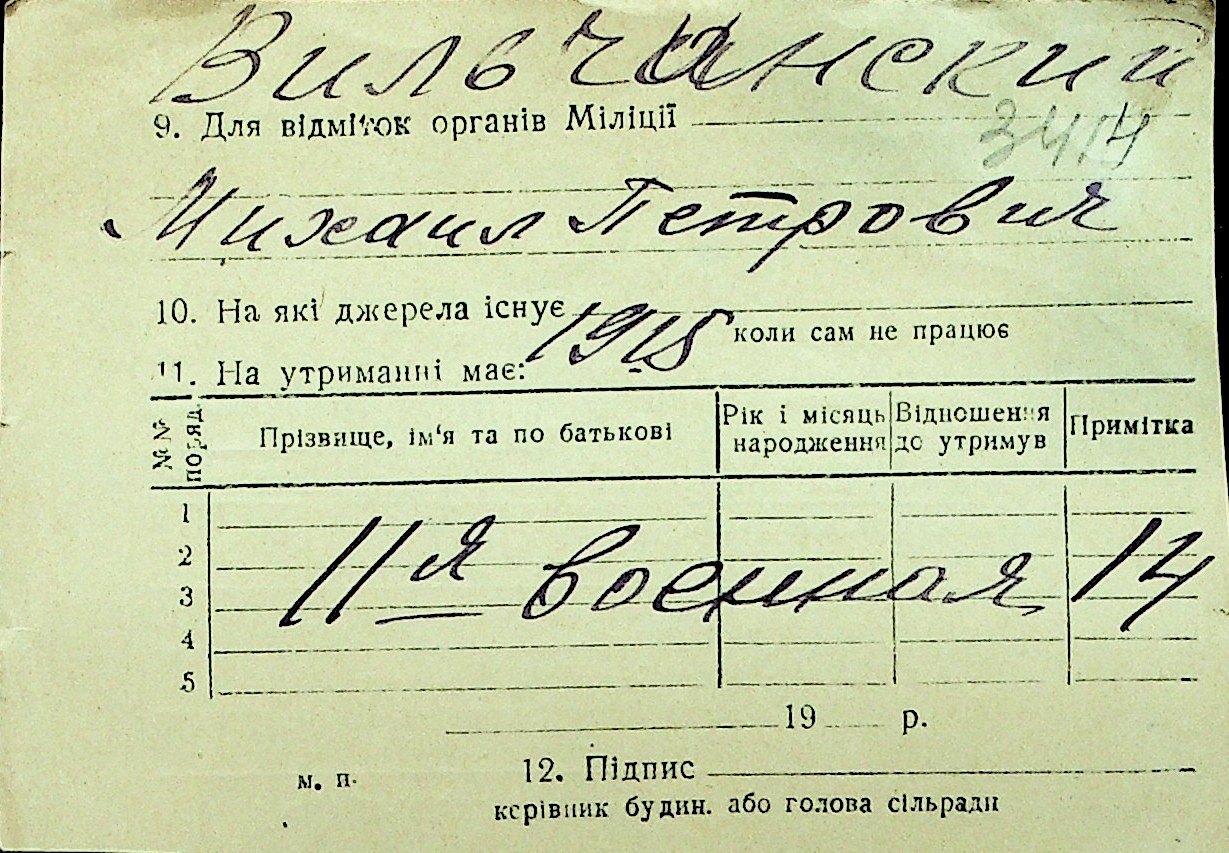 Вильчанский
9. Для відміток органів Міліції
3414
Михаил Петрович
10. На які джерела існує
1915 коли сам не працює
11. На утриманні має:
№№ поряд. Прізвище, ім'я та по батькові Рік і місяць народження Відношення до утримув Примітка
1
2
11я военная 14
3
4
5
19 р.
м. п. 12. Підпис
керівник будин. або голова сільради